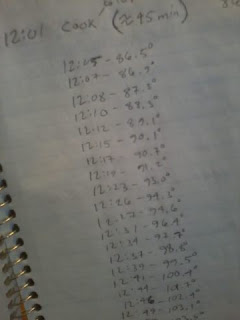 12:01 Cook (≈45 min)
12:05 - 86.5°
12:07 - 86.9°
12:08 - 87.2°
12:10 - 88.3°
12:12 - 89.1°
12:15 - 90.1°
12:17 - 90.7°
12:19 - 91.2°
12:23 - 93.0°
12:26 - 94.2°
12:27 - 94.6°
12:31 - 96.4°
12:34 - 97.7°
12:37 - 98.8°
12:39 - 99.5°
12:41 - 100.4°
12:44 - 101.3°
12:46 - 102.4°
12:49 - 103.1°